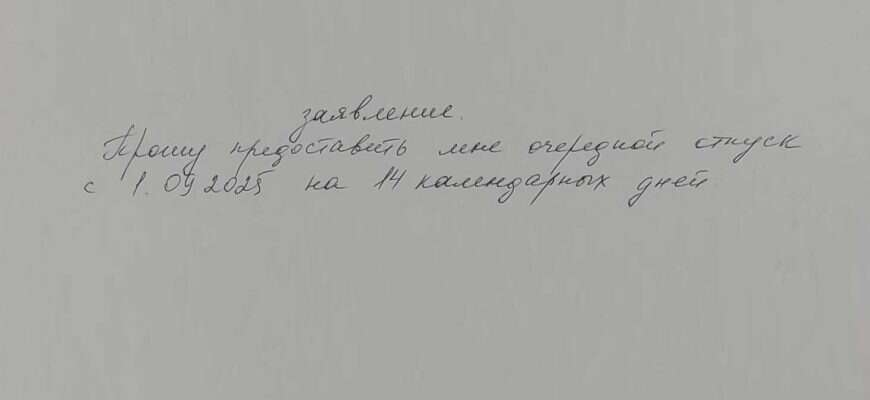 заявление.
Прошу предоставить мне очередной отпуск
с 1.09 2025 на 14 календарных дней